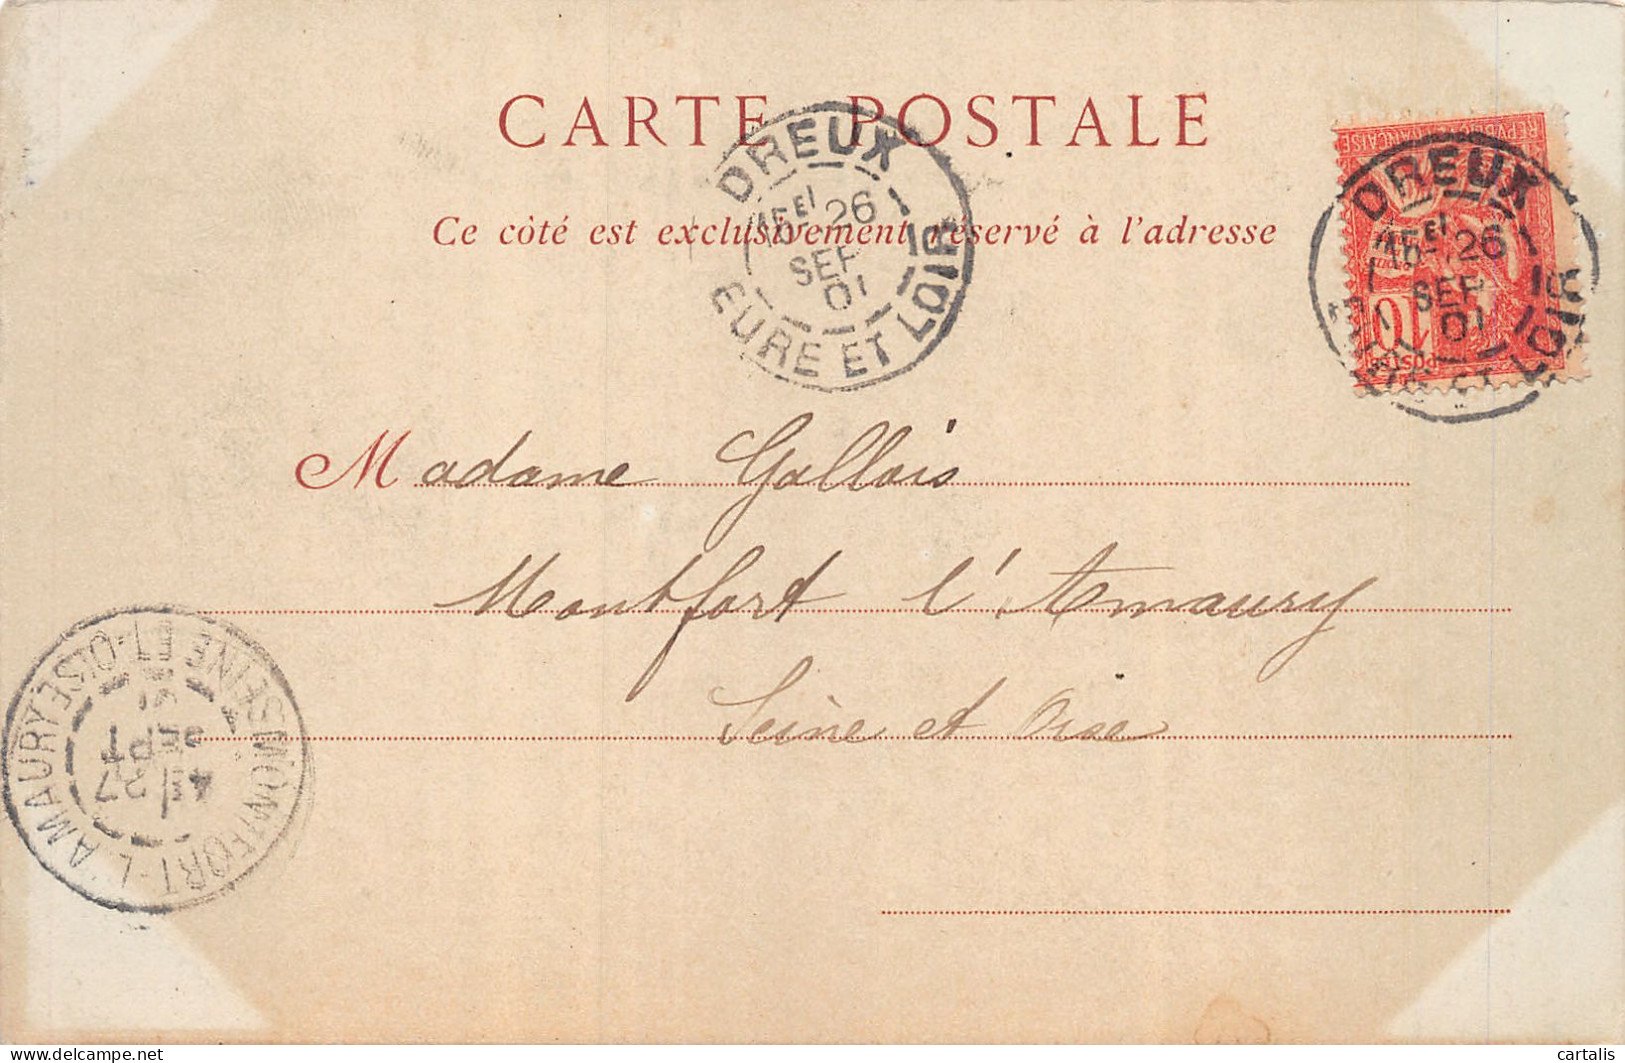 CARTE POSTALE
Ce côté est exclusivement réservé à l'adresse
DREUX
26
SEP
01
EURE ET LOIR
REPVBLIQVE FRANÇAISE
10
POSTES
DREUX
26
SEP
01
EURE ET LOIR
Madame Gallois
Montfort l'Amaury
Seine et Oise
MONTFORT-L'AMAURY
SEINE-ET-OISE
27
SEPT
delcampe.net
cartalis